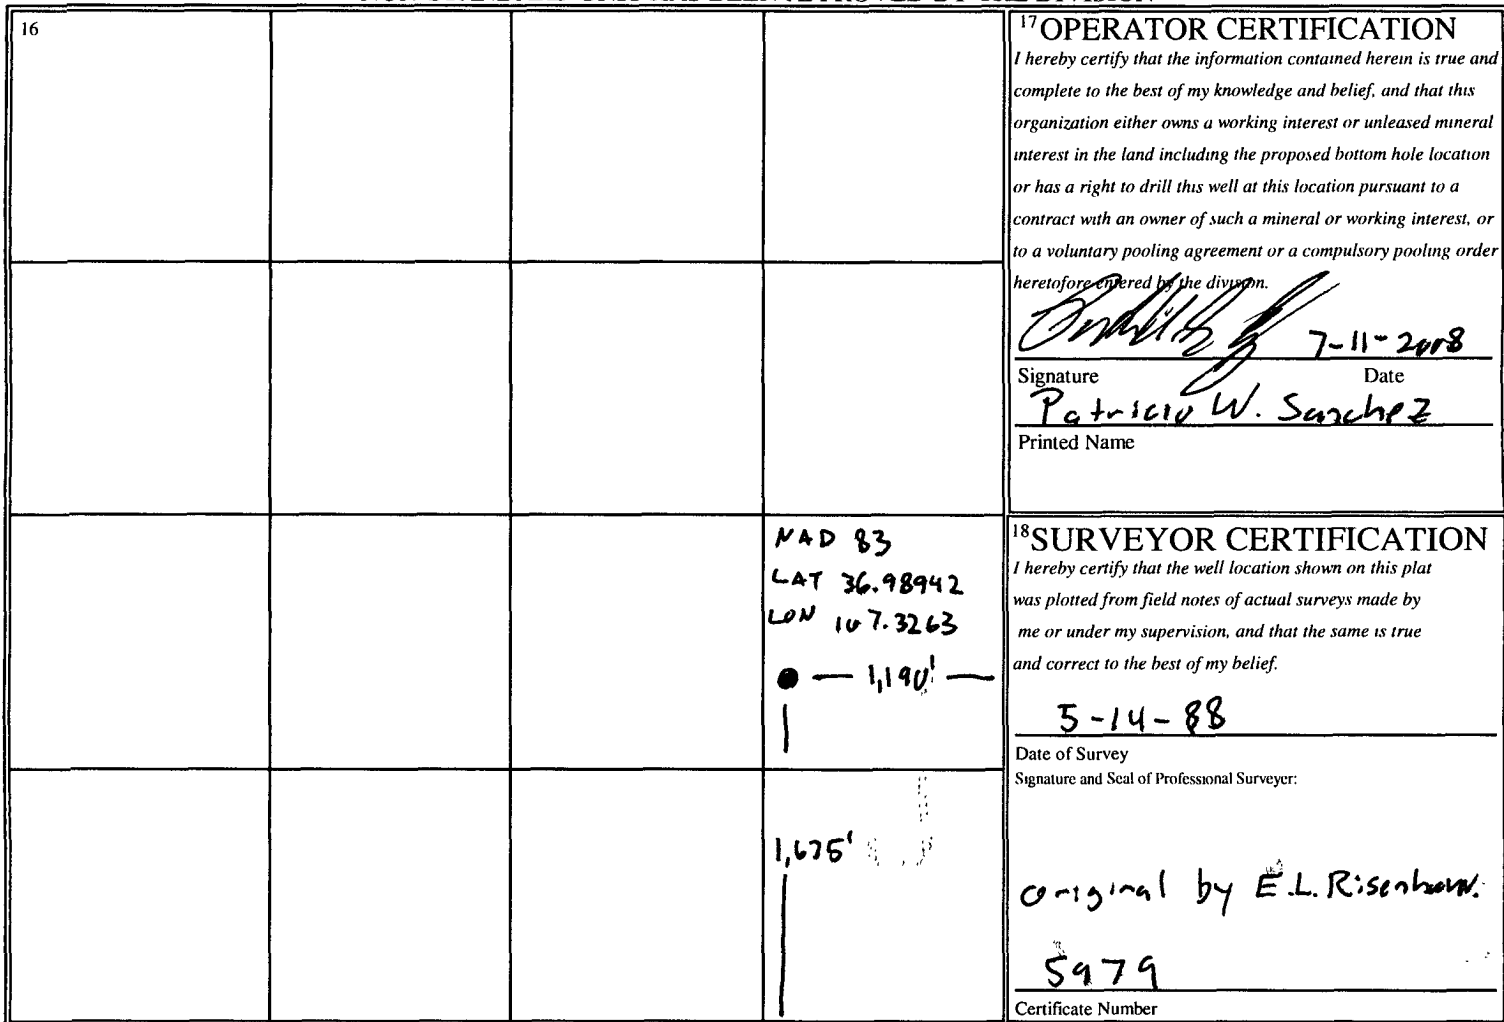 16
17 OPERATOR CERTIFICATION
I hereby certify that the information contained herein is true and
complete to the best of my knowledge and belief, and that this
organization either owns a working interest or unleased mineral
interest in the land including the proposed bottom hole location
or has a right to drill this well at this location pursuant to a
contract with an owner of such a mineral or working interest, or
to a voluntary pooling agreement or a compulsory pooling order
heretofore entered by the division.
7-11-2008
Signature Date
Patricio W. Sanchez
Printed Name
NAD 83
LAT 36.98942
LON 107.3263
1,190'
1,675'
18 SURVEYOR CERTIFICATION
I hereby certify that the well location shown on this plat
was plotted from field notes of actual surveys made by
me or under my supervision, and that the same is true
and correct to the best of my belief.
5-14-88
Date of Survey
Signature and Seal of Professional Surveyer:
original by E.L.
5979
Certificate Number